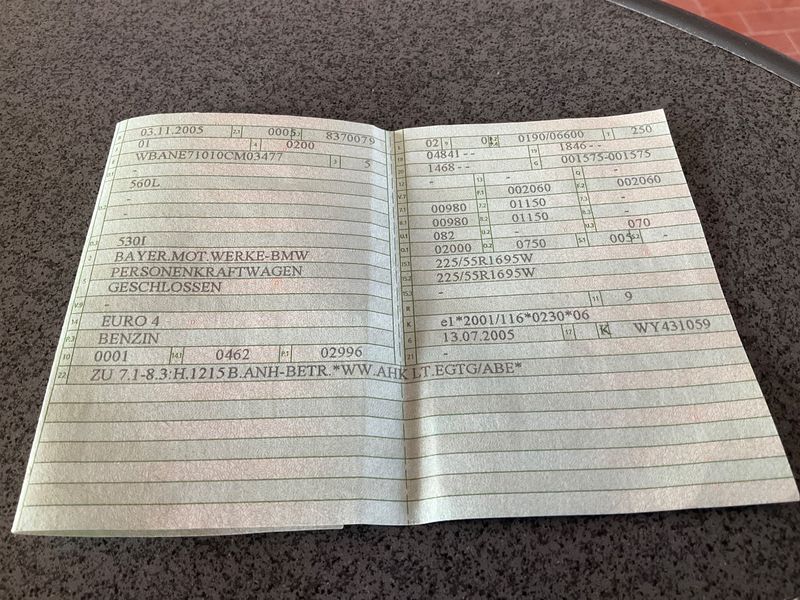 03.11.2005 0005 8370079
01 0200
WBANE71010CM03477 5
-
560L
-
-
530I
BAYER.MOT.WERKE-BMW
PERSONENKRAFTWAGEN
GESCHLOSSEN
-
EURO 4
BENZIN
10 0001 14.1 0462 P.1 02996
22 ZU 7.1-8.3:H.1215 B.ANH-BETR.*WW.AHK LT.EGTG/ABE*
02 0190/06600 T 250
04841-- 19 1846--
1468-- G 001575-001575
- 13 - Q -
002060 F.2 002060
00980 7.2 01150 7.3 -
00980 8.2 01150 8.3 -
082 - U.3 070
02000 U.2 0750 S.1 005 S.2 -
225/55R1695W
225/55R1695W
- -
R 11 9
K e1*2001/116*0230*06
6 13.07.2005 17 K WY431059
21 -